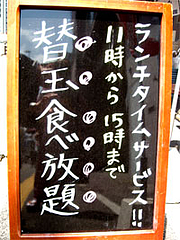 ランチタイムサービス!!
11時から15時まで
替玉食べ放題